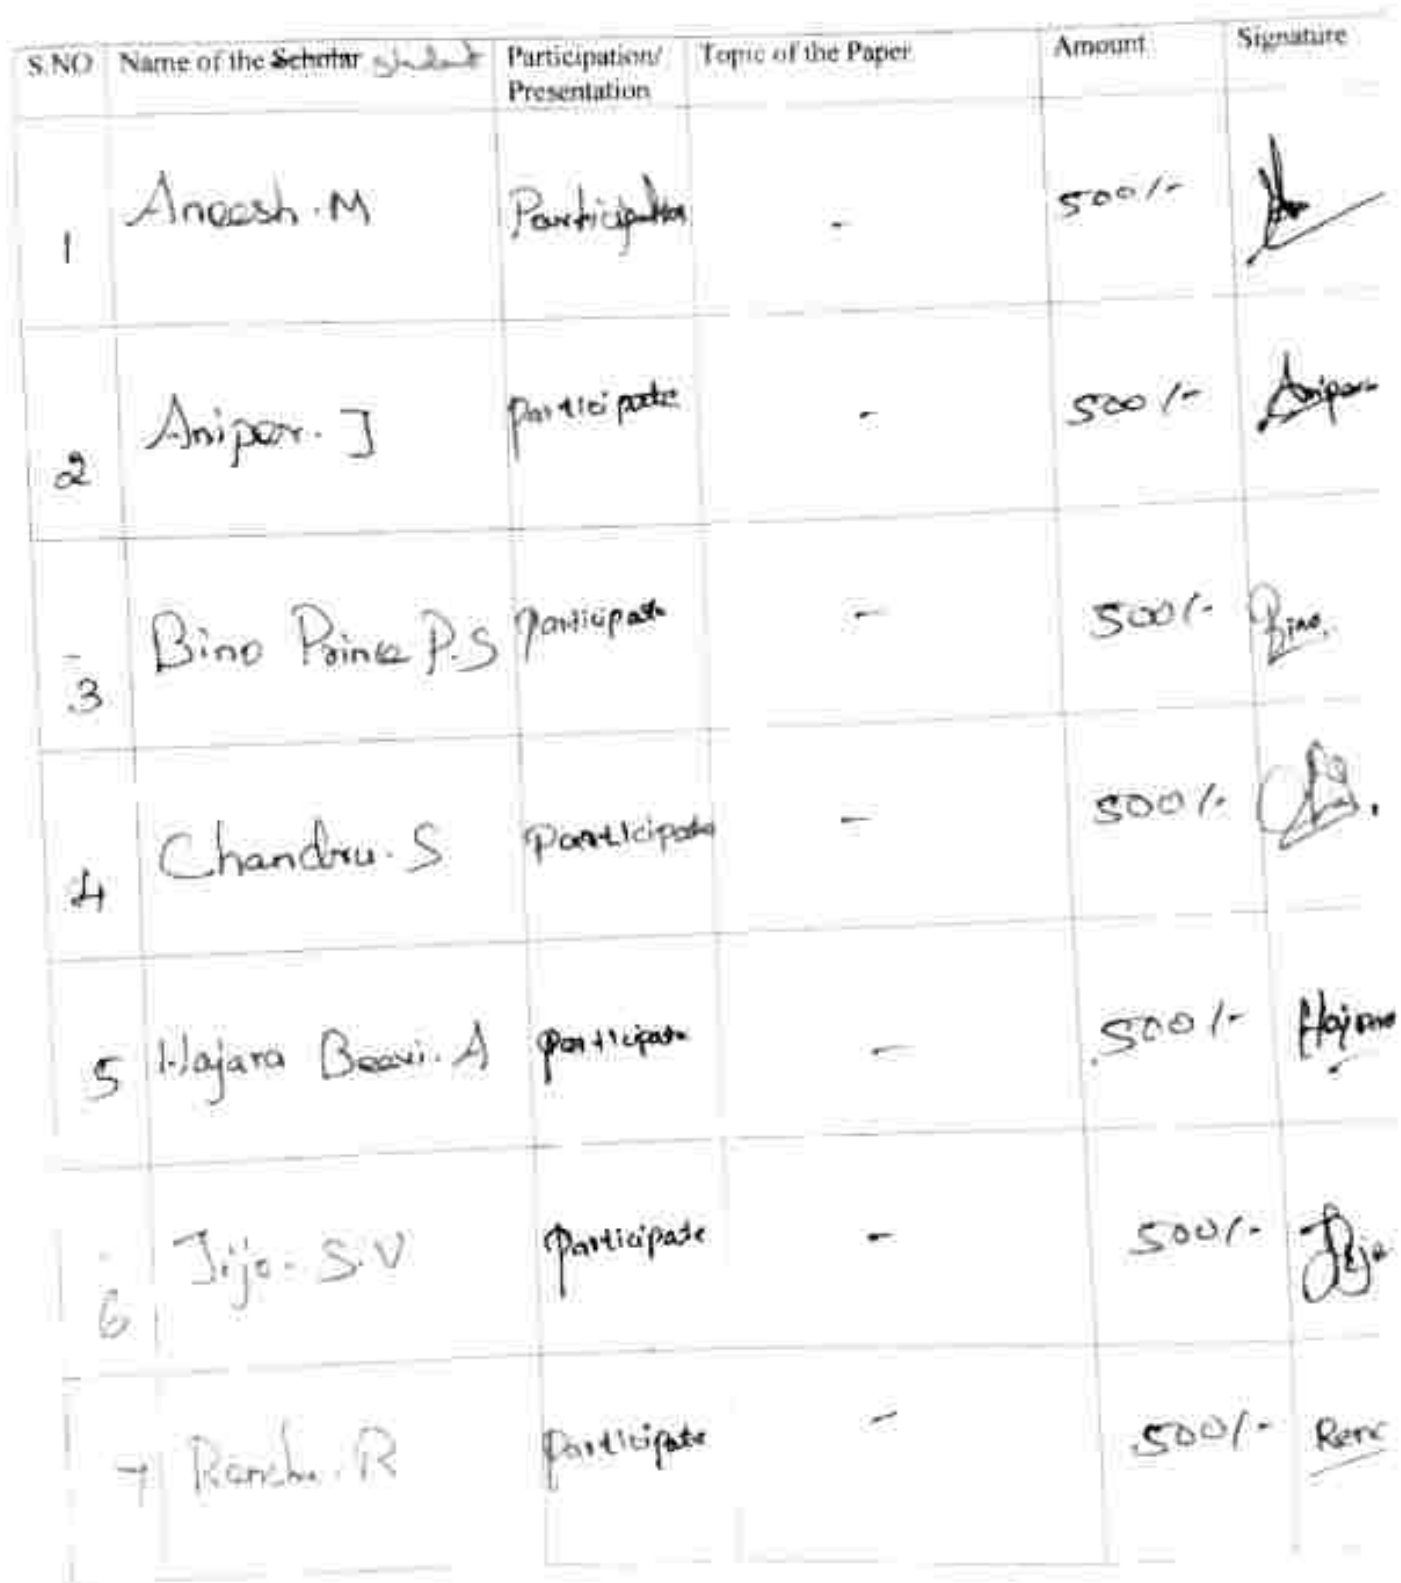 S.NO Name of the Scholar student Participation/ Topic of the Paper Amount Signature
Presentation
1 Aneesh.M Participation - 500/-
2 Anipar.J Participate - 500/- Anipar
3 Bino Prince P.S Participate - 500/- Bino.
4 Chandru.S Participate - 500/-
5 Hajara Beevi.A Participate - 500/- Hajara
6 Jijo.S.V Participate - 500/- Jijo
7 R Participate - 500/-